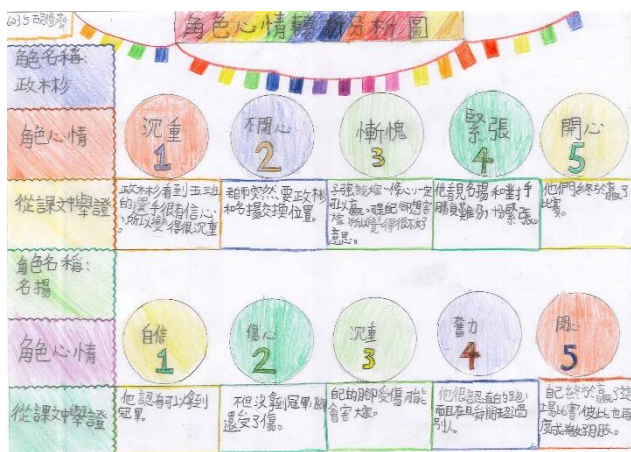 角色心情轉折分析圖
角色名稱:
政木杉
角色心情
沉重
1
不開心
2
慚愧
3
緊張
4
開心
5
從課文中舉證
政木杉看到五班
的選手很有信心
,所以變得很沉重
。
老師突然要政杉
和名揚交換位置。
可以贏
所以覺得很不好
意思。
他看見名揚和對手
勝負難分,十分緊張。
他們終於贏了
比賽。
角色名稱:
名揚
角色心情
自信
1
傷心
2
沉重
3
奮力
4
開心
5
從課文中舉證
他認為可以拿到
冠軍。
不但沒拿到冠軍,腳
還受了傷。
自己的腳受傷可能
會害大家。
他很認真的跑,
而且在瞬間超過
別人。
自己終於贏了這
場比賽,彼此也再
度成為好朋友。